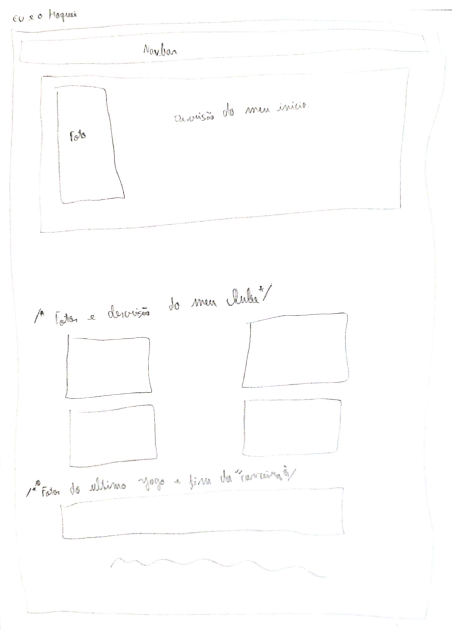 EU e o Hoquei
Navbar
Foto
Descrisão do meu inicio
/* Fotos e descrisão do meu clube */
/* Fotos do ultimo jogo e fim da "carreira" */